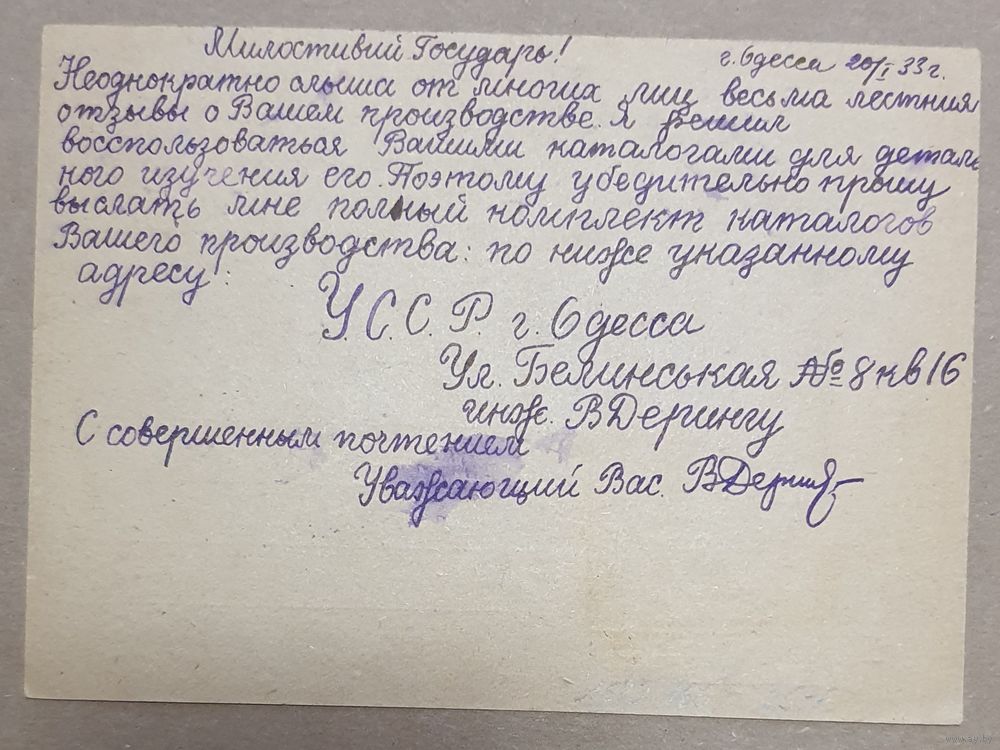 Милостивий Государь!
г. Одесса 20/I 33 г.
Неоднократно слыша от многих лиц весьма лестния
отзывы о Вашем производстве. я решил
восспользоваться Вашими каталогами для деталь
ного изучения его. Поэтому убедительно прошу
выслать мне полный комплект каталогов
Вашего производства: по ниже указанному
адресу:
У.С.С.Р. г. Одесса
Ул. Белинськая № 8 кв 16
инж. В Дерингу
С совершенным почтением
Уважающий Вас. ВДеринг
www.ay.by